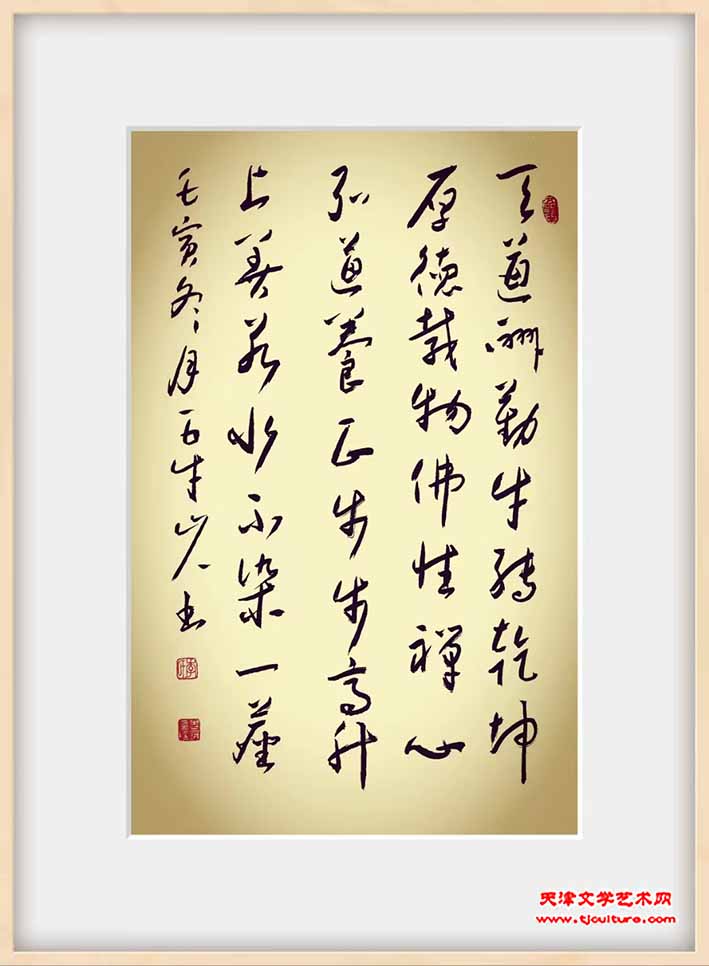 天道酬勤牛转乾坤
厚德载物佛性禅心
弘道养正步步高升
上善若水不染一尘
壬寅冬月石牛山人书
天津文学艺术网
www.tjculture.com